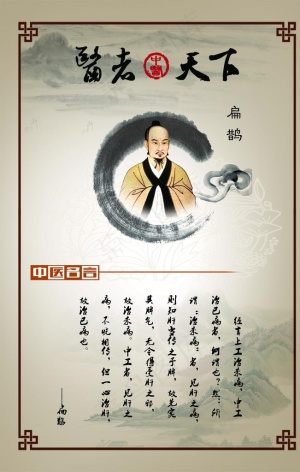 醫者中醫天下
扁鹊
中医名言
经言上工治未病,中工
治已病者,何谓也?然:所
谓:治未病:者,见肝之病,
则知肝当传之于脾,故先实
其脾气,无令得受肝之邪,
故治未病。中工者,见肝之
病,不晓相传,但一心治肝,
故治已病也。
——扁鹊